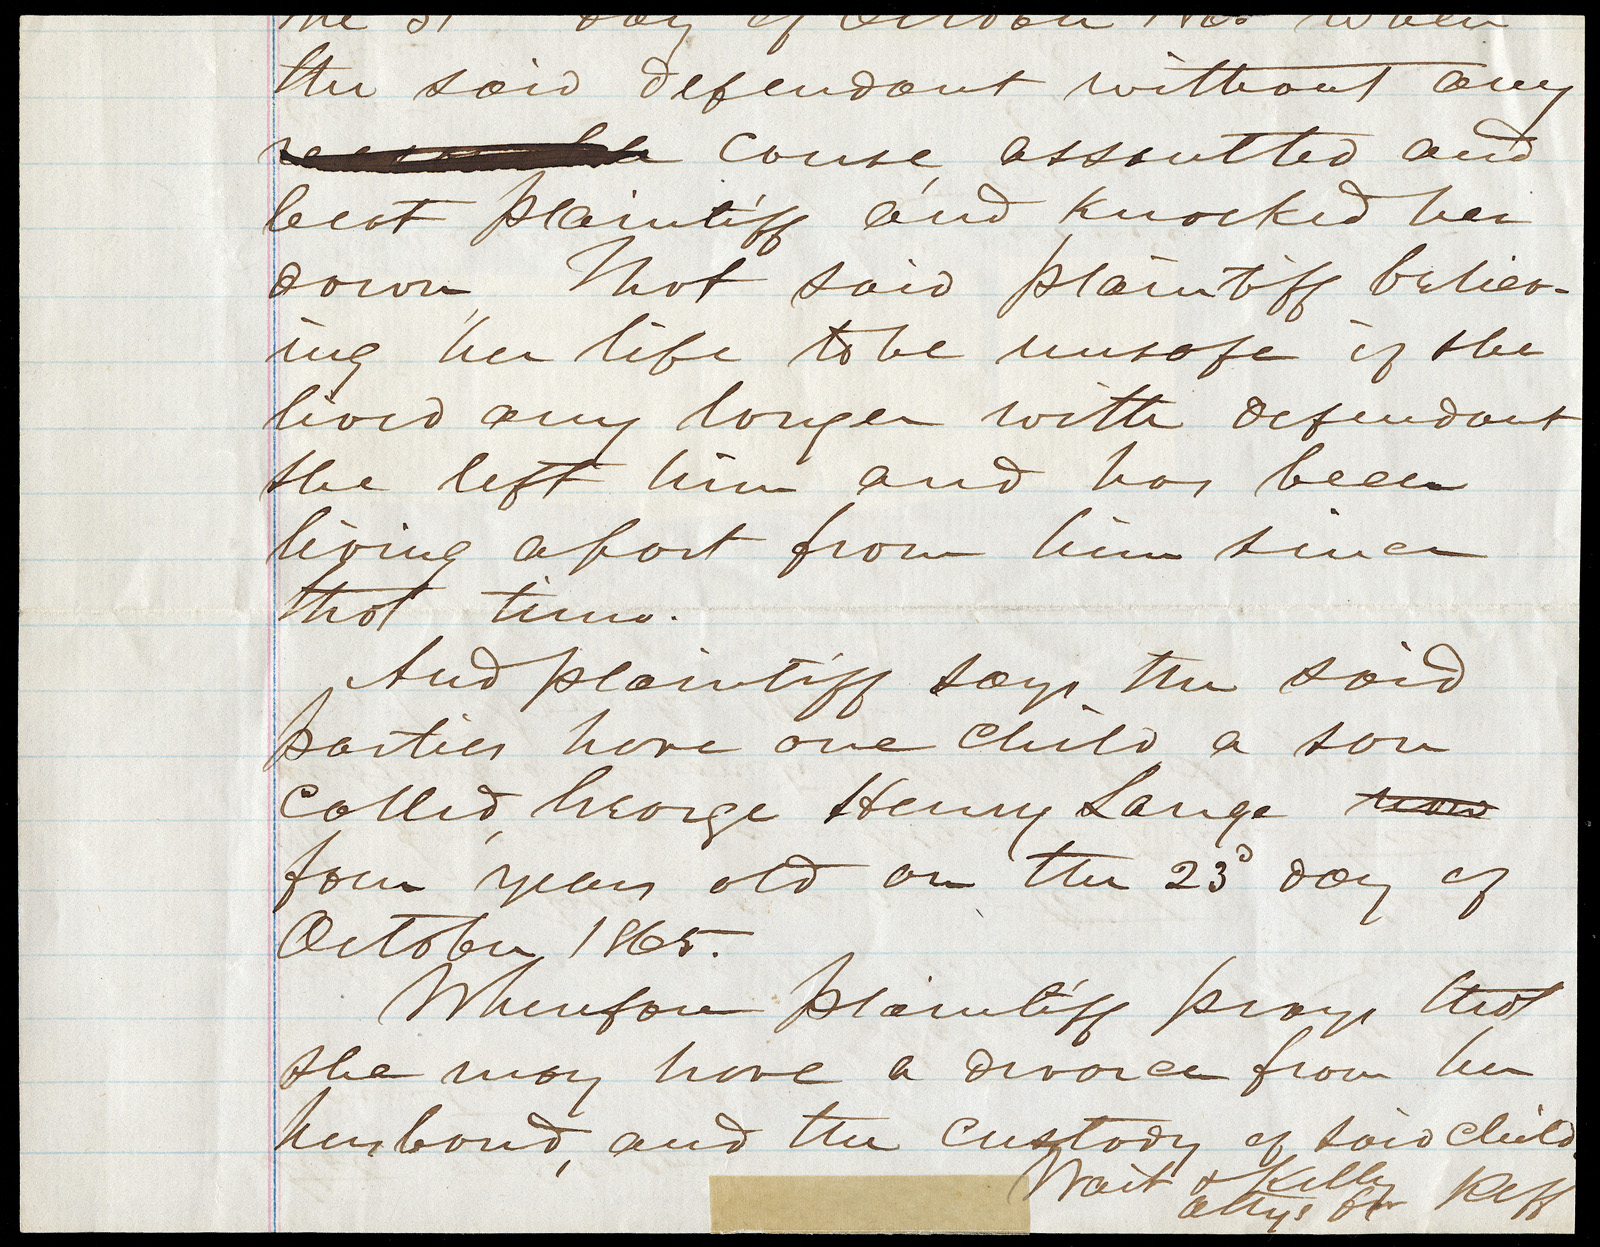 the 31st day of October 1865 when
the said defendant without any
cause, assaulted and
beat plaintiff and knocked her
down, That said plaintiff believ-
ing her life to be unsafe if she
lived any longer with defendant
she left him and has been
living apart from him since
that time.
And plaintiff says the said
parties have one child, a son
called, George Henry Lange now
four years old on the 23d day of
October 1865.
Wherefore plaintiff prays that
she may have a divorce from her
husband, and the custody of said child.
Wait & Kelly
attys for Plff